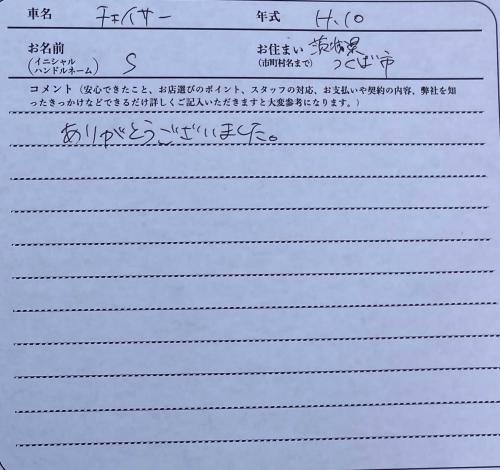 車名 チェイサー 年式 H.10
お名前 お住まい 茨城県
(イニシャル ハンドルネーム) S (市町村名まで) つくば市
コメント(安心できたこと、お店選びのポイント、スタッフの対応、お支払いや契約の内容、弊社を知
ったきっかけなどできるだけ詳しくご記入いただきますと大変参考になります。)
ありがとうございました。